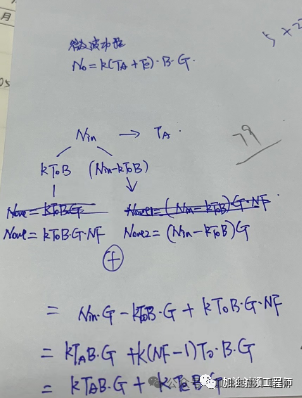 微波功率
No = k(TA + Te)·B·G.
Nin → TA.
kToB (Nin-kToB)
Nout = kToBG Nout2 = (Nin-kToB)·G·NF
Nout = kToB·G·NF Nout2 = (Nin-kToB)G
+
= Nin·G - kToB·G + kToB·G·NF
= kTAB·G + k(NF-1)To·B·G
= kTAB·G + kTeBG
79